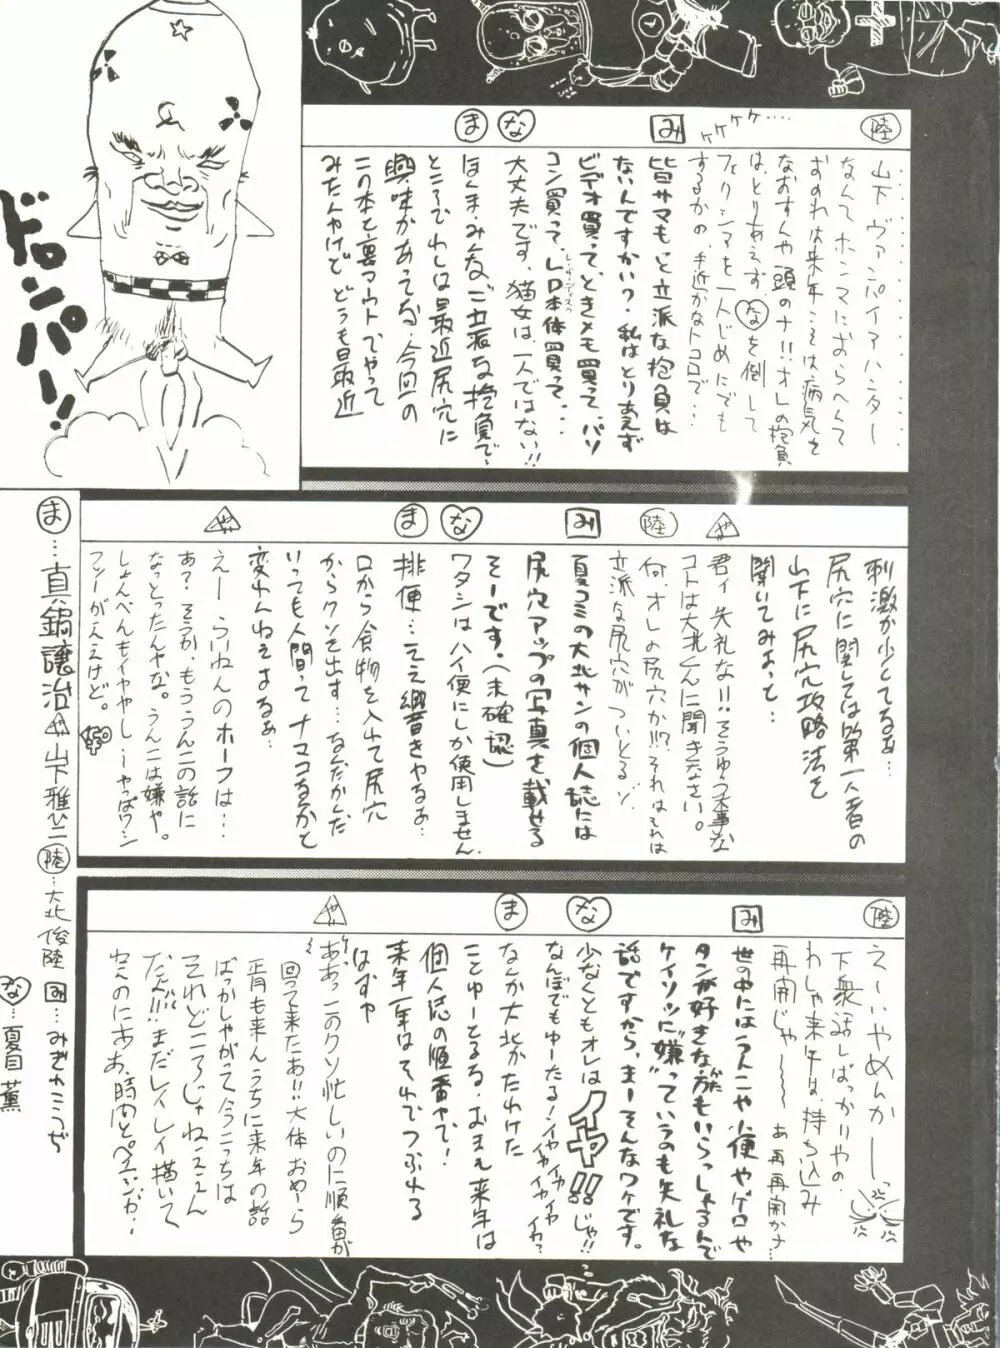 陸
山下ヴァンパイアハンター
なんて、ホンマにおらへんて
おのれは来年こそは病気を
なおすんや頭のナ!!オレの抱負
は、とりあえず、なを倒して
フェリシアを一人じめにでも
するかの、手近かなトコロで…
ケケケケ・・・・
み
皆サマもっと立派な抱負は
ないんですかい?私はとりあえず
ビデオ買って、ときメモ買って、パソ
コン買って、LD本体買って、・・・
な
大丈夫です、猫女は、一人ではない!!
ま
ほんま、みんな、ご立派な抱負で、
ところでわしは最近尻穴に
興味があってな、今回の
この本を裏マウトでやって
みたんやけど、どうも最近
ドロンパー!!
刺激が少とてるなぁ…
尻穴に関しては第一人者の
山下に尻穴攻略法を
聞いてみよって…
や
君ィ失礼な!!そうゆう大事な
コトは大北くんに聞きなさい。
陸
何、オレの尻穴か!!?それはそれは
立派な尻穴がついとるゾ、
み
夏コミの大北サンの個人誌には
尻穴アップの写真を載せる
そーです。(未確認)
な
ワタシはハイ便にしか使用しません、
ま
排便…ええ響きやなぁ…
口から食物を入れて尻穴
からクソを出す…なんだかんだ
いっても人間ってナマコなんかと
変わんねぇよなあ…
や
えー らいねんのホーフは…
あ?そうか、もううんこの話に
なっとったんやな。うんこは嫌や。
しょんべんもイヤやし…やっぱワシ
フツーがええけど。
陸
え〜いやめんかーっ
下衆な話しばっかりやの
わしゃ来年は、持ち込み
再開じゃ〜〜〜 あ 再再開かナ…
み
世の中にはうんこや小便やゲロや
タンが好きな方もいらっしゃるんで
ケイソツに"嫌"っていうのも失礼な
話ですから、まーそんなワケです。
な
少なくともオレはイヤ!!じゃ!!
なんぼでもゆーたる!イヤイヤイヤイヤ イヤ?
ま
なんか大北がたわけた
ことゆーとるな、おまえ来年は
個人誌の順番やで!
来年一年はそれでつぶれる
はずや
や
ああっこのクソ忙しいのに順番が
回って来たあ!!大体おめーら
正月も来んうちに来年の話
ばっかしやがって今こっちは
それどころじゃねえええん
だよ!!!まだレイレイ描いて
ねえのにああ、時間と、ページが…
ま…真鍋譲治 や…山下雅必 陸…大北俊陸 み…みぎわこうぢ
な…夏目薫